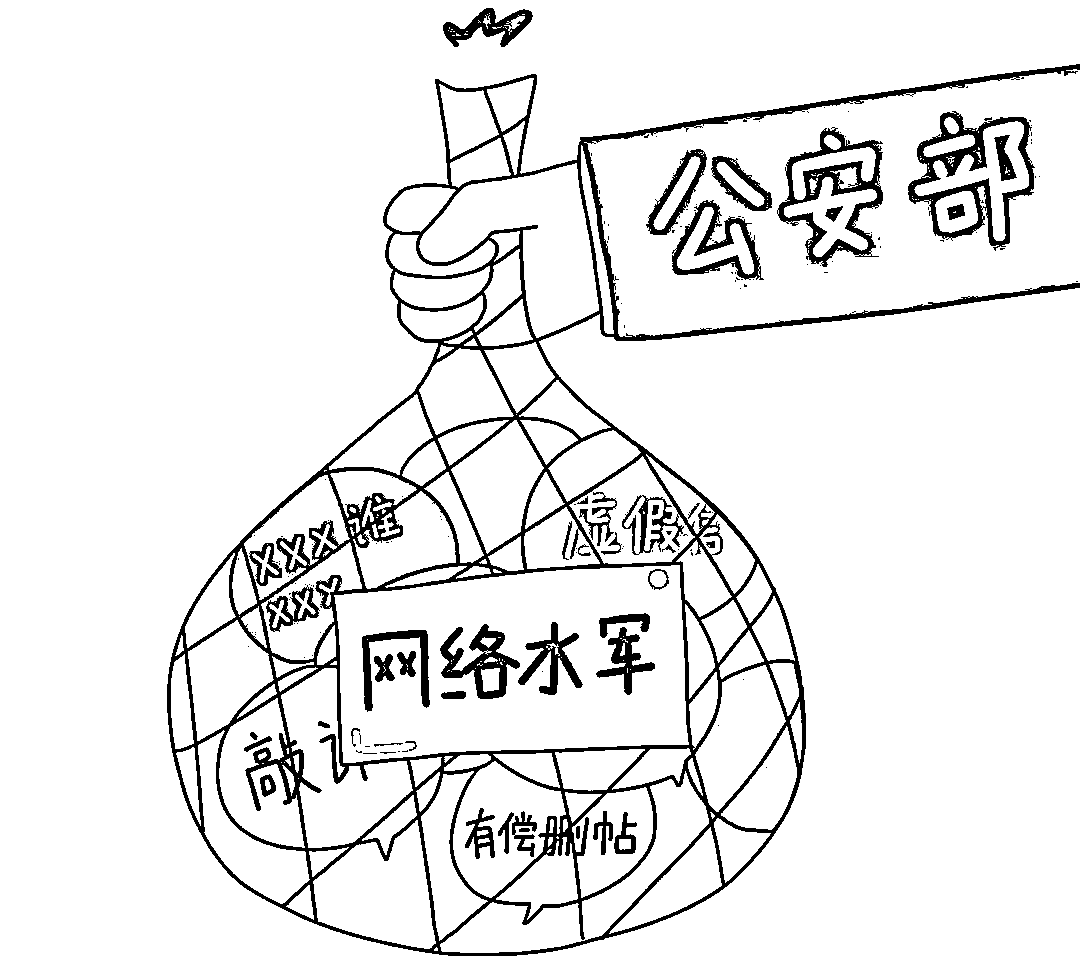 公安部
xxx谁
xxx
虚假信
网络水军
敲诈
有偿删帖